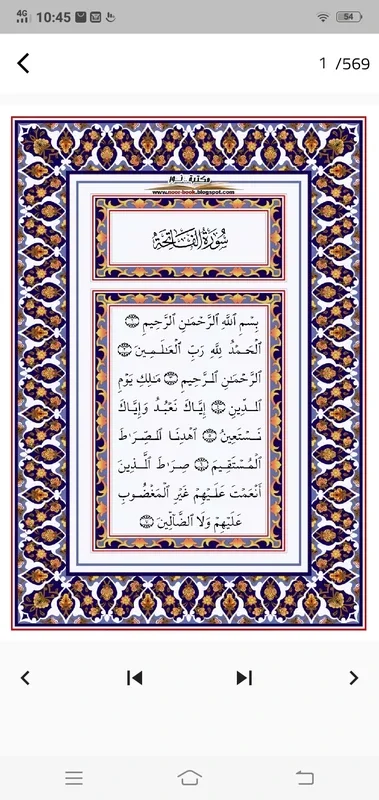 4G 10:45 54
1 /569
مكتبة نور
www.noor-book.blogspot.com
سُورَةُ الفَاتِحَةِ
بِسۡمِ ٱللَّهِ ٱلرَّحۡمَٰنِ ٱلرَّحِيمِ ١
ٱلۡحَمۡدُ لِلَّهِ رَبِّ ٱلۡعَٰلَمِينَ ٢
ٱلرَّحۡمَٰنِ ٱلرَّحِيمِ ٣ مَٰلِكِ يَوۡمِ
ٱلدِّينِ ٤ إِيَّاكَ نَعۡبُدُ وَإِيَّاكَ
نَسۡتَعِينُ ٥ ٱهۡدِنَا ٱلصِّرَٰطَ
ٱلۡمُسۡتَقِيمَ ٦ صِرَٰطَ ٱلَّذِينَ
أَنۡعَمۡتَ عَلَيۡهِمۡ غَيۡرِ ٱلۡمَغۡضُوبِ
عَلَيۡهِمۡ وَلَا ٱلضَّآلِّينَ ٧